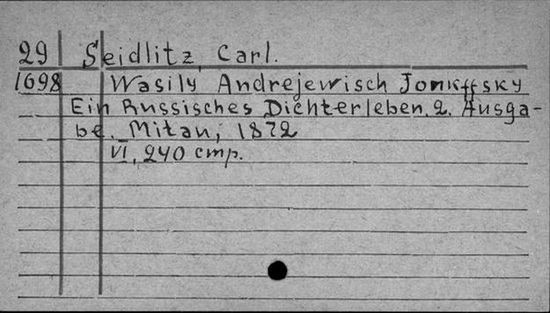 29 Seidlitz, Carl.
1698 Wasily Andrejewisch Jonkffsky
Ein Russisches Dichterleben. 2. Ausga-
be. Mitau, 1872
VI, 240 cmp.